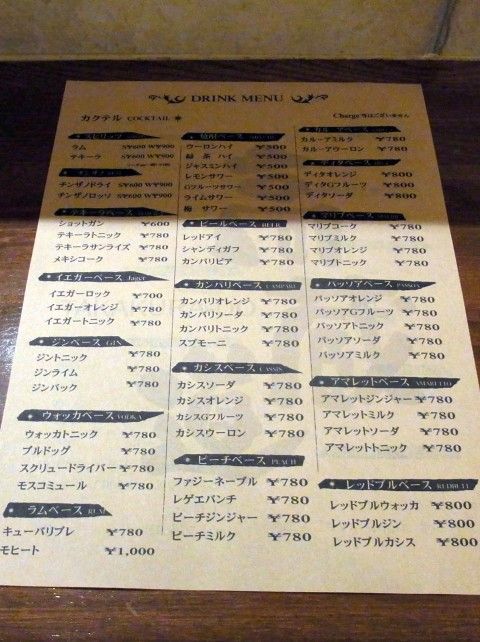 DRINK MENU
カクテル COCKTAIL
Charge 等はございません
スピリッツ
ラム S¥600 W¥900
テキーラ S¥600 W¥900
チンザノ
チンザノドライ S¥600 W¥900
チンザノロッソ S¥600 W¥900
テキーラベース
ショットガン ¥600
テキーラトニック ¥780
テキーラサンライズ ¥780
メキシコーク ¥780
イエガーベース Jager
イエガーロック ¥700
イエガーオレンジ ¥780
イエガートニック ¥780
ジンベース GIN
ジントニック ¥780
ジンライム ¥780
ジンバック ¥780
ウォッカベース VODKA
ウォッカトニック ¥780
ブルドッグ ¥780
スクリュードライバー ¥780
モスコミュール ¥780
ラムベース RUM
キューバリブレ ¥780
モヒート ¥1,000
焼酎ベース
ウーロンハイ ¥500
緑茶ハイ ¥500
ジャスミンハイ ¥500
レモンサワー ¥500
Gフルーツサワー ¥500
ライムサワー ¥500
梅サワー ¥500
ビールベース BEER
レッドアイ ¥780
シャンディガフ ¥780
カンパリビア ¥780
カンパリベース CAMPARI
カンパリオレンジ ¥780
カンパリソーダ ¥780
カンパリトニック ¥780
スプモーニ ¥780
カシスベース CASSIS
カシスソーダ ¥780
カシスオレンジ ¥780
カシスGフルーツ ¥780
カシスウーロン ¥780
ピーチベース PEACH
ファジーネーブル ¥780
レゲエパンチ ¥780
ピーチジンジャー ¥780
ピーチミルク ¥780
カルーアベース
カルーアミルク ¥780
カルーアウーロン ¥780
ディタベース
ディタオレンジ ¥800
ディタGフルーツ ¥800
ディタソーダ ¥800
マリブベース
マリブコーク ¥780
マリブミルク ¥780
マリブオレンジ ¥780
マリブトニック ¥780
パッソアベース PASSOA
パッソアオレンジ ¥780
パッソアGフルーツ ¥780
パッソアトニック ¥780
パッソアソーダ ¥780
パッソアミルク ¥780
アマレットベース AMARETTO
アマレットジンジャー ¥780
アマレットミルク ¥780
アマレットソーダ ¥780
アマレットトニック ¥780
レッドブルベース REDBULL
レッドブルウォッカ ¥800
レッドブルジン ¥800
レッドブルカシス ¥800